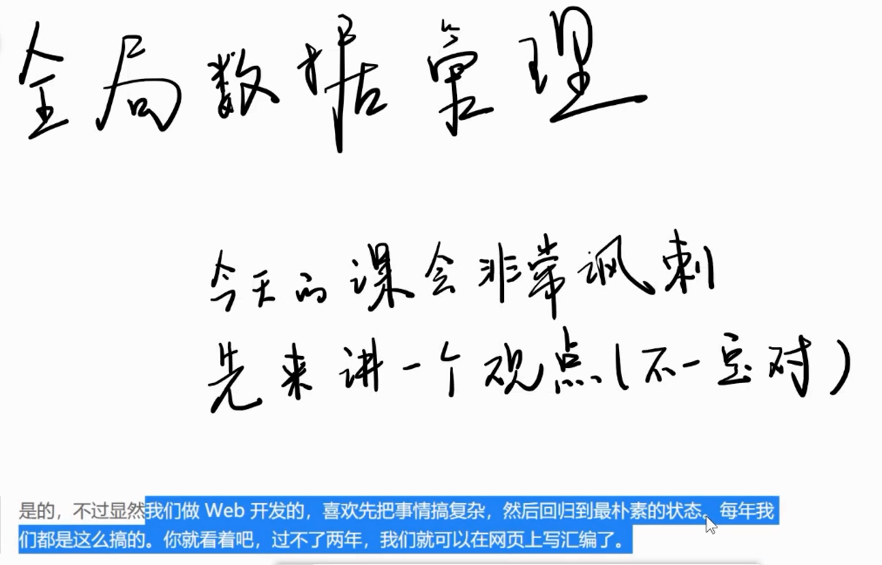 全局数据管理
今天的课会非常讽刺
先来讲一个观点(不一定对)
是的，不过显然我们做 Web 开发的，喜欢先把事情搞复杂，然后回归到最朴素的状态。每年我
们都是这么搞的。你就看着吧，过不了两年，我们就可以在网页上写汇编了。